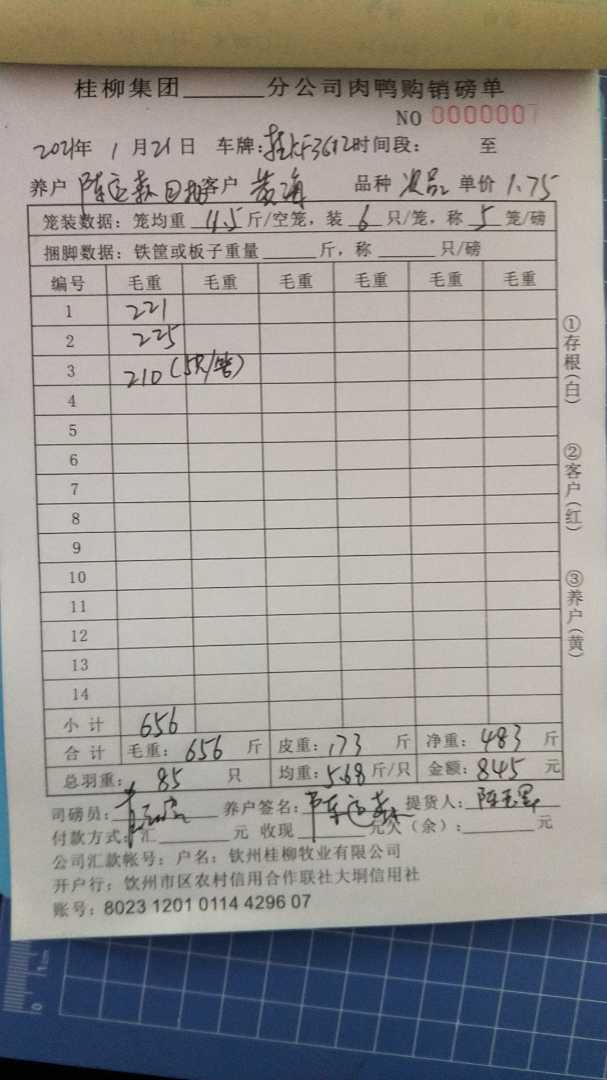 桂柳集团______分公司肉鸭购销磅单
NO 0000007
2021年 1月21日 车牌:桂KF3612时间段: 至
养户 陈运森 客户 黄海 品种 次品 单价 1.75
笼装数据: 笼均重 11.5 斤/空笼, 装 6 只/笼, 称 5 笼/磅
捆脚数据: 铁筐或板子重量______斤, 称______只/磅
编号 毛重 毛重 毛重 毛重 毛重 毛重
1 221
2 225
3 210 (5只/笼)
4
5
6
7
8
9
10
11
12
13
14
小计 656
合计 毛重: 656 斤 皮重: 173 斤 净重: 483 斤
总羽重: 85 只 均重: 5.68 斤/只 金额: 845 元
司磅员: 养户签名: 陈运森 提货人: 陈
付款方式: 汇______元 收现______元欠(余):______元
公司汇款帐号: 户名: 钦州桂柳牧业有限公司
开户行: 钦州市区农村信用合作联社大垌信用社
账号: 8023 1201 0114 4296 07
①存根(白)
②客户(红)
③养户(黄)